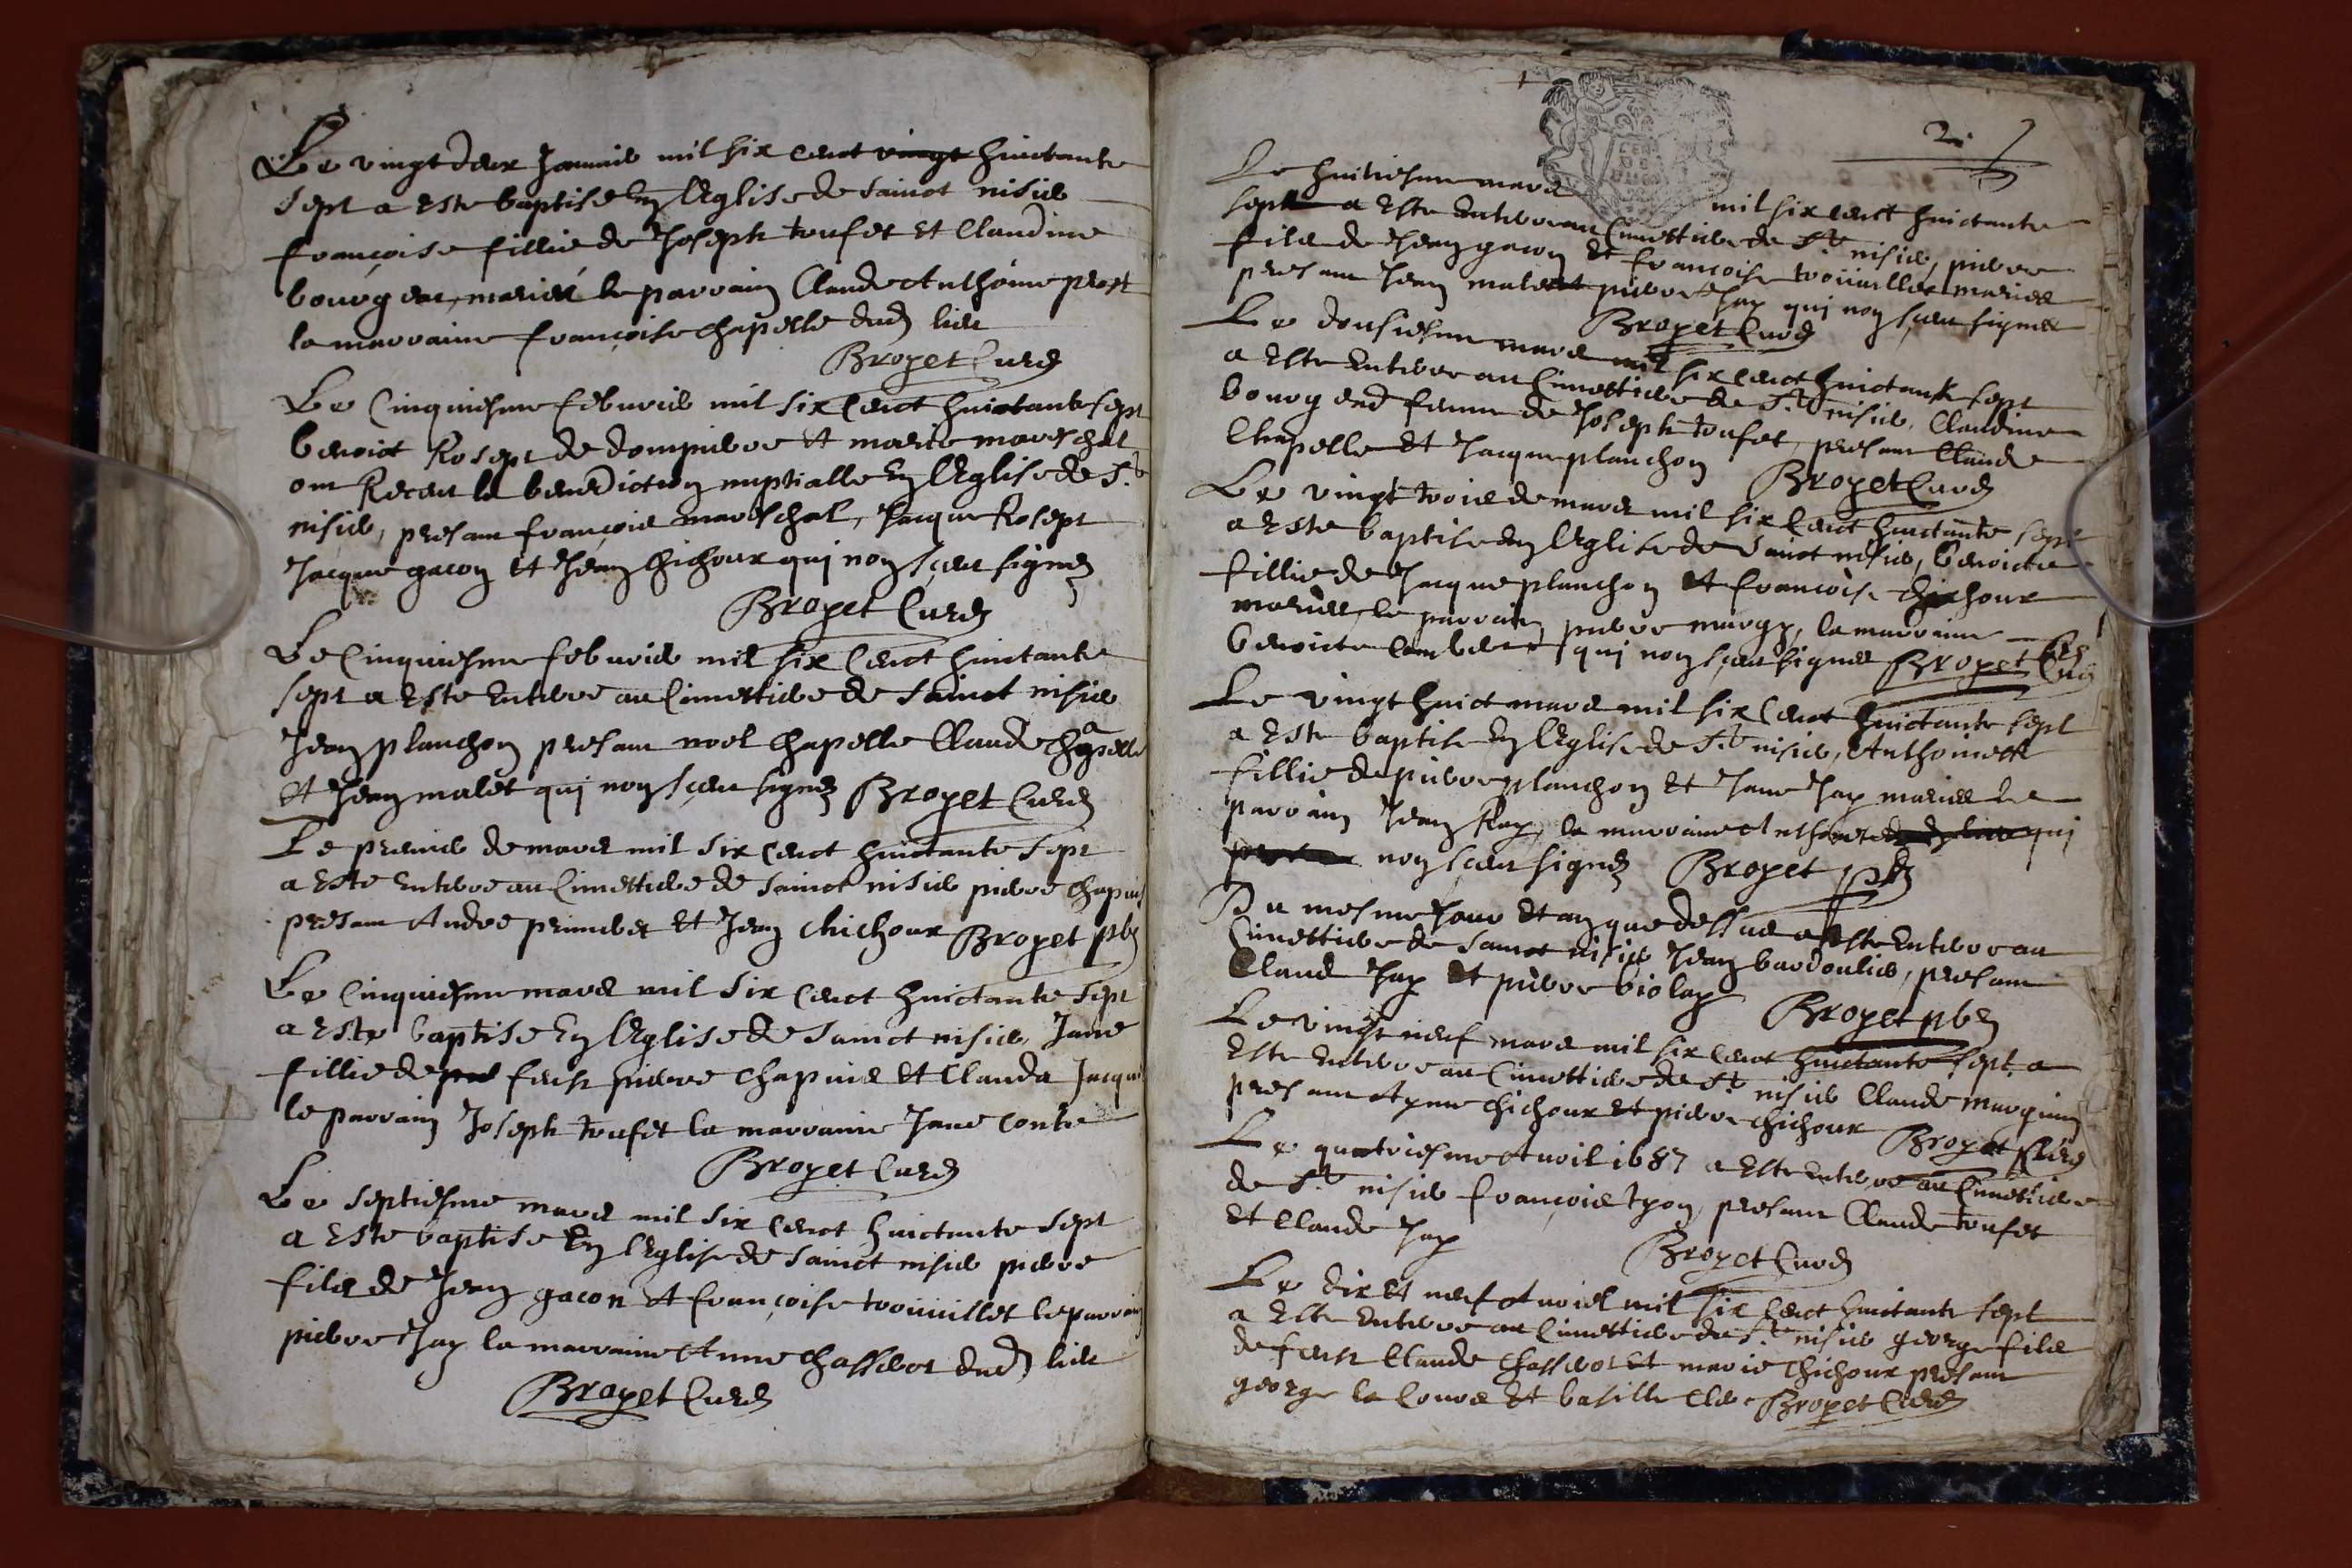 Le vingt deux Januier mil six cent vingt huictante
sept a este baptise en l'Eglise de sainct nisier
françoise fillie de Joseph toufet et Claudine
bourg mariés le parrain Claude Anthoine prost
la marraine françoise chapelle dud lieu
Broyet Curé
Le Cinquiesme feburier mil six Cent huictante sept
benoict Rosept de dompierre et marie mareschal
ont Receu la benediction nuptialle en l'Eglise de St
nisier, presant françois mareschal, Jacque Rosept
Jacque gacon et Jean Chichoux qui non sceu signé
Broyet Curé
Le Cinquiesme feburier mil six Cent huictante
sept a este enterre au Cimettiere de sainct nisier
Jean planchon presant noel chapelle Claude chapelle
et Jean malet qui non sceu signé Broyet Curé
Le premier de mars mil six Cent huictante sept
a este enterre au Cimettiere de sainct nisier pierre chapuis
presant Andre et Jean chichoux Broyet pbr
Le Cinquiesme mars mil six Cent huictante sept
a este baptise en l'Eglise de sainct nisier, Jane
fillie de feust pierre chapuis et Clauda Jacqu
le parrain Joseph toufet la marraine Jane Conte
Broyet Curé
Le septiesme mars mil six Cent huictante sept
a este baptise en l'Eglise de sainct nisier pierre
fils de Jean gacon et françoise trouuillet le parrain
pierre Jay la marraine Anne chasserot dud lieu
Broyet Curé
2.
Le huitiesme mars mil six cent huictante
sept a este enterre au Cimettiere de St nisier, pierre
fils de Jean gacon et françoise trouuillet mariés
presant Jean malet pierre Jay qui non sceu signer
Broyet Curé
Le dousiesme mars mil six cent huictante sept
a este enterre au Cimettiere de St nisier, Claudine
bourg femme de Joseph toufet, presant Claude
Chapelle et Jacque planchon Broyet Curé
Le vingt trois de mars mil six Cent huictante sept
a este baptise en l'Eglise de sainct nisier, benoicte
fillie de Jacque planchon et françoise chichoux
mariés, le parrain pierre margy, la marraine
benoicte lambert qui non sceu signer Broyet Curé
Le vingt huict mars mil six Cent huictante sept
a este baptise en l'Eglise de St nisier, Anthoinette
fillie de pierre planchon et Jane Jay mariés le
parrain Jean Ray, la marraine qui
non sceu signé Broyet pbr
Du mesme Jour et an que dessus a este enterre au
Cimettiere de sainct nisier Jean bardoulier, presant
Claude Jay et pierre biolay Broyet pbr
Le vingt neuf mars mil six Cent huictante sept a
este enterre au Cimettiere de St nisier Claude marguin
presant chichoux et pierre chichoux Broyet Curé
Le quatriesme Auril 1687 a este enterre au Cimettiere
de St nisier françois tyon, presant Claude toufet
et Claude Jay
Broyet Curé
Le dix et neuf Auriel mil six Cent huictante sept
a este enterre au Cimettiere de St nisier george fils
de feust Claude Chasserot et marie Chichoux presant
george la et basille Broyet Curé